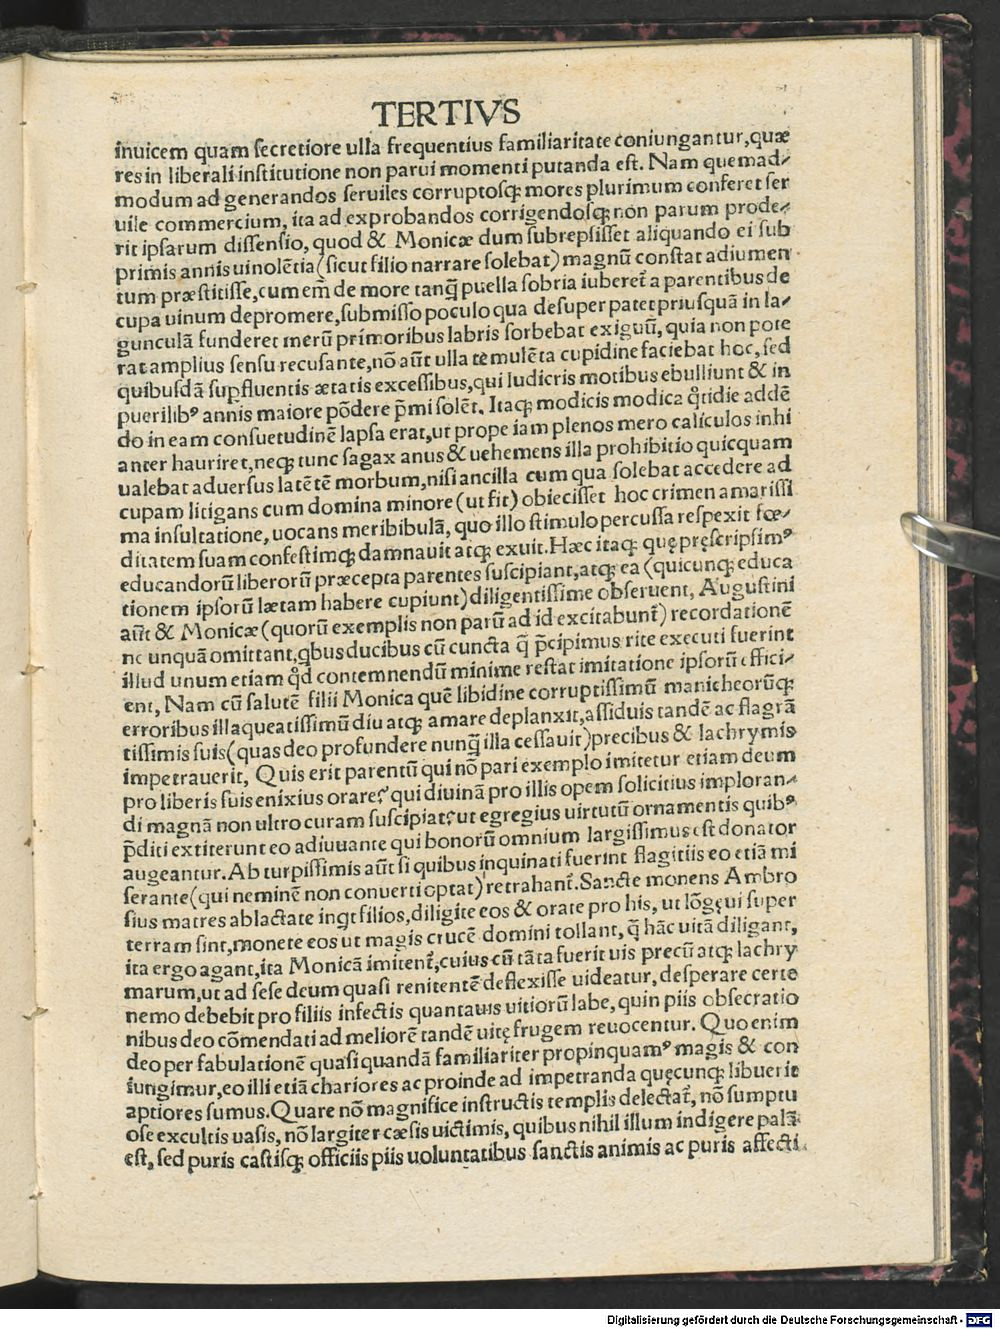 TERTIVS
inuicem quam ſecretiore ulla frequentius familiaritate coniungantur,quæ
res in liberali inſtitutione non parui momenti putanda eſt. Nam quemad⸗
modum ad generandos ſeruiles corruptoſq; mores plurimum conferet ſer
uile commercium, ita ad exprobandos corrigendoſq; non parum prode⸗
rit ipſarum diſſenſio, quod & Monicæ dum ſubrepſiſſet aliquando ei ſub
primis annis uinolētia (ſicut filio narrare ſolebat) magnū conſtat adiumen
tum præſtitiſſe, cum em̄ de more tanq̄ puella ſobria iuberet᷑ a parentibus de
cupa uinum depromere, ſubmiſſo poculo qua deſuper patet priuſquā in la⸗
gunculā funderet merū primoribus labris ſorbebat exiguū, quia non pote
rat amplius ſenſu recuſante, nō aūt ulla temulēta cupidine faciebat hoc, ſed
quibuſdā ſupfluentis ætatis exceſſibus, qui ludicris motibus ebulliunt & in
puerilibꝰ annis maiore pōdere p̄mi ſolēt. Itaq; modicis modica q̊tidie addē
do in eam conſuetudinē lapſa erat, ut prope iam plenos mero caliculos inhi
anter hauriret, neq; tunc ſagax anus & uehemens illa prohibitio quicquam
ualebat aduerſus latētē morbum, niſi ancilla cum qua ſolebat accedere ad
cupam litigans cum domina minore (ut fit) obieciſſet hoc crimen amariſſi
ma inſultatione, uocans meribibulā, quo illo ſtimulo percuſſa reſpexit fœ⸗
ditatem ſuam confeſtimq; damnauit atq; exuit. Hæc itaq; quę pręſcripſimꝰ
educandorū liberorū præcepta parentes ſuſcipiant, atq; ea (quicunq; educa
tionem ipſorū lætam habere cupiunt) diligentiſſime obſeruent, Auguſtini
aūt & Monicæ (quorū exemplis non parū ad id excitabunt᷑) recordationē
ne unquā omittant, qbus ducibus cū cuncta q̄ p̄cipimus rite executi fuerint
illud unum etiam q̊d contemnendū minime reſtat imitatione ipſorū effici⸗
ent, Nam cū ſalutē filii Monica quē libidine corruptiſſimū manicheorūq;
erroribus illaqueatiſſimū diu atq; amare deplanxit, aſſiduis tandē ac flagrā
tiſſimis ſuis (quas deo profundere nunq̄ illa ceſſauit) precibus & lachrymis
impetrauerit, Quis erit parentū qui nō pari exemplo imitetur etiam deum
pro liberis ſuis enixius orare? qui diuinā pro illis opem ſolicitius imploran⸗
di magnā non ultro curam ſuſcipiat? ut egregius uirtutū ornamentis quibꝰ
p̄diti extiterunt eo adiuuante qui bonorū omnium largiſſimus eſt donator
augeantur. Ab turpiſſimis aūt ſi quibus inquinati fuerint flagitiis eo etiā mi
ſerante (qui neminē non conuerti optat) retrahant᷑. Sancte monens Ambro
ſius matres ablactate inqt filios, diligite eos & orate pro his, ut lōgęui ſuper
terram ſint, monete eos ut magis crucē domini tollant, q̄ hāc uitā diligant,
ita ergo agant, ita Monicā imitent᷑, cuius cū tāta fuerit uis precū atq; lachry
marum, ut ad ſeſe deum quaſi renitentē deflexiſſe uideatur, deſperare certe
nemo debebit pro filiis infectis quantauis uitiorū labe, quin piis obſecratio
nibus deo cōmendati ad meliorē tandē uitę frugem reuocentur. Quo enim
deo per fabulationē quaſi quandā familiariter propinquamꝰ magis & con
iungimur, eo illi etiā chariores ac proinde ad impetranda quęcunq; libuerit
aptiores ſumus. Quare nō magnifice inſtructis templis delectat᷑, nō ſumptu
oſe excultis uaſis, nō largiter cæſis uictimis, quibus nihil illum indigere palā
eſt, ſed puris caſtiſq; officiis piis uoluntatibus ſanctis animis ac puris affecti
Digitalisierung gefördert durch die Deutsche Forschungsgemeinschaft - DFG